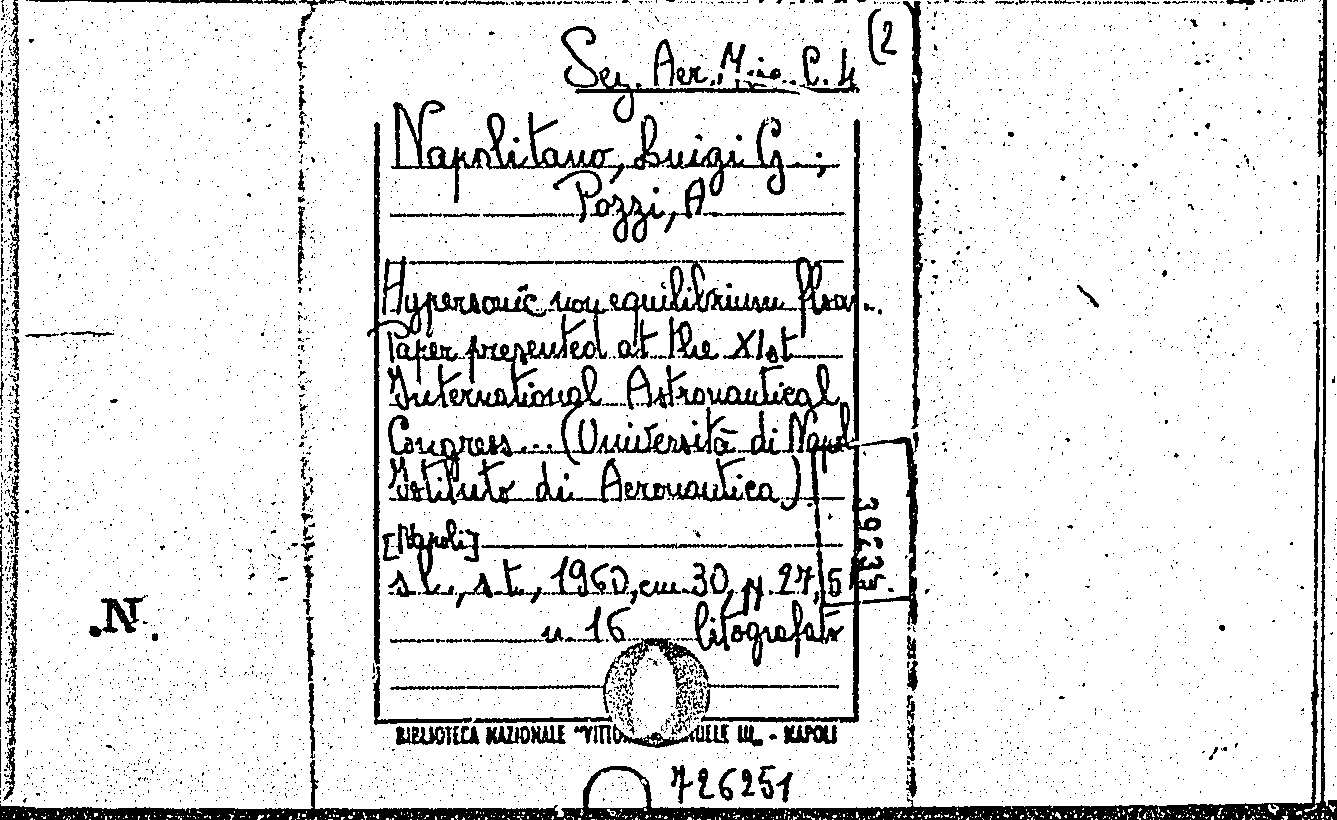 (2
Sez. Aer. Misc. C. 4
Napolitano, Luigi G. ;
Pozzi, A
Hypersonic non equilibrium flow..
Paper presented at the XIst
International Astronautical
Congress... (Università di Napol
Istituto di Aeronautica)
[Napoli]
s.l., s.t., 1960, cm. 30, pp. 27, 5
n. 16 litografato
39635
.N.
BIBLIOTECA NAZIONALE "VITTO UELE III„ - NAPOLI
726251